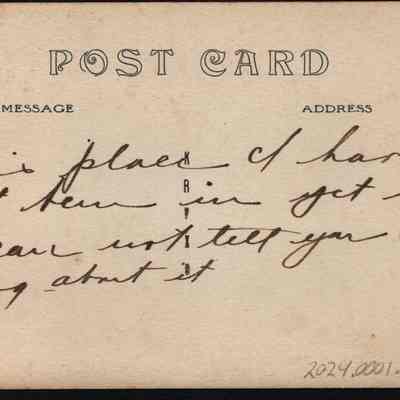 POST CARD
MESSAGE ADDRESS
is place I hav
t been in yet
can not tell you
g about it
2024.0001.